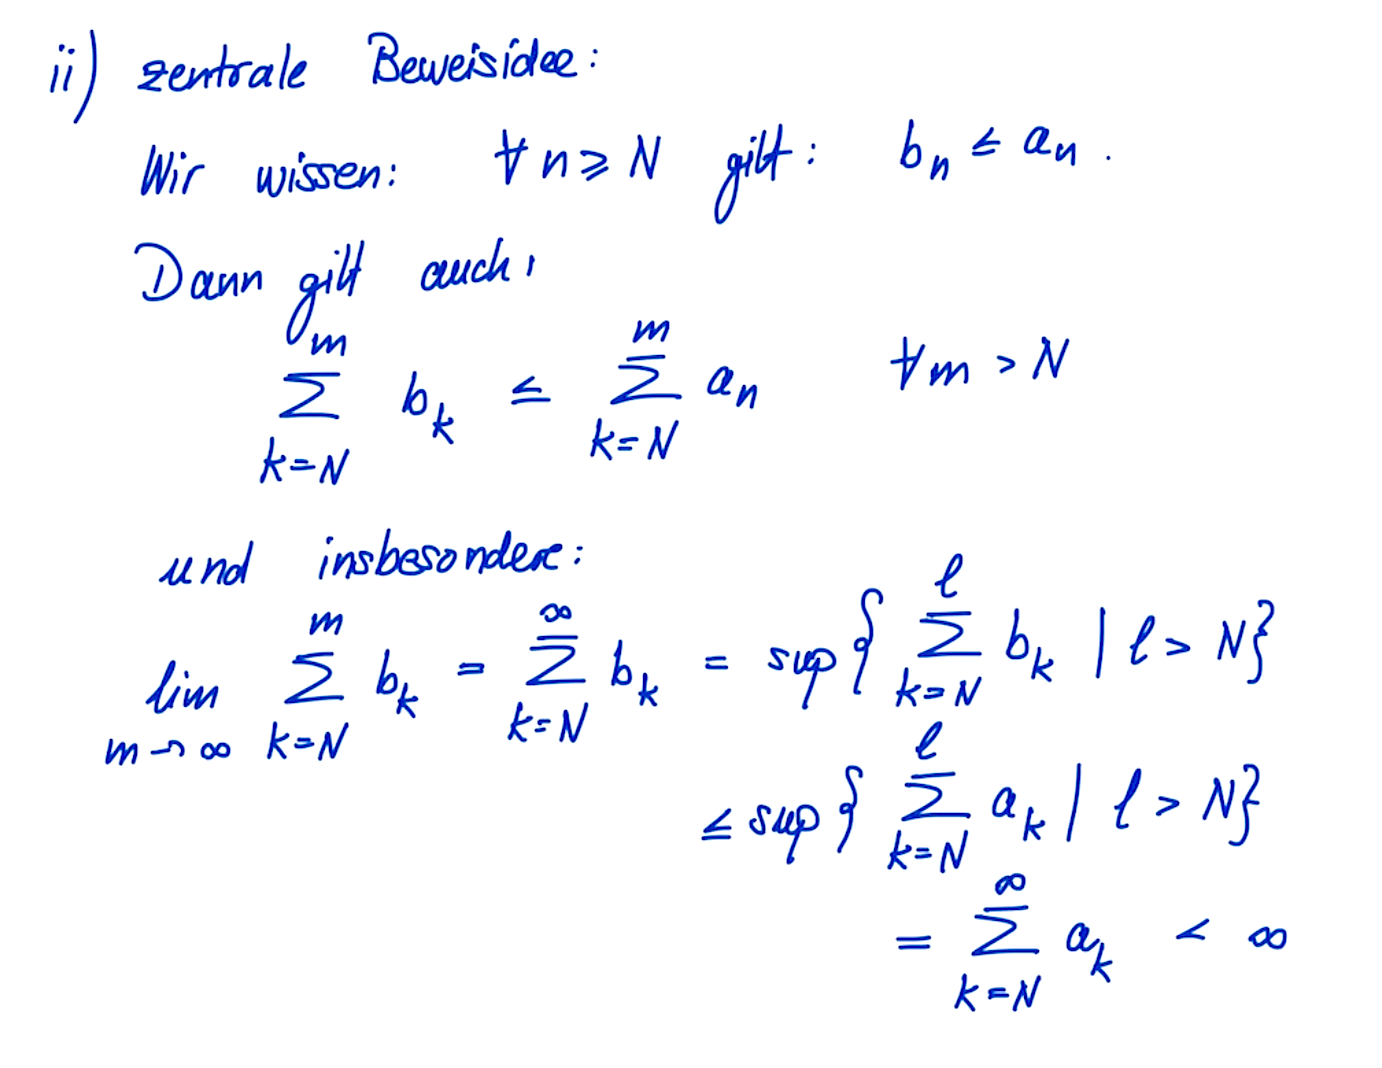 ii) zentrale Beweisidee:
Wir wissen: ∀ n ≥ N gilt: bₙ ≤ aₙ.
Dann gilt auch,
∑_{k=N}^{m} b_k ≤ ∑_{k=N}^{m} a_n ∀ m > N
und insbesondere:
lim_{m→∞} ∑_{k=N}^{m} b_k = ∑_{k=N}^{∞} b_k = sup{ ∑_{k=N}^{ℓ} b_k | ℓ > N}
≤ sup{ ∑_{k=N}^{ℓ} a_k | ℓ > N}
= ∑_{k=N}^{∞} a_k < ∞